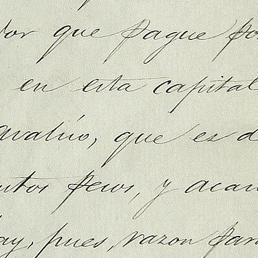 dor que pague por
en esta capital
avalúo, que es d
ntos pesos, y acan
ay, pues, razon para